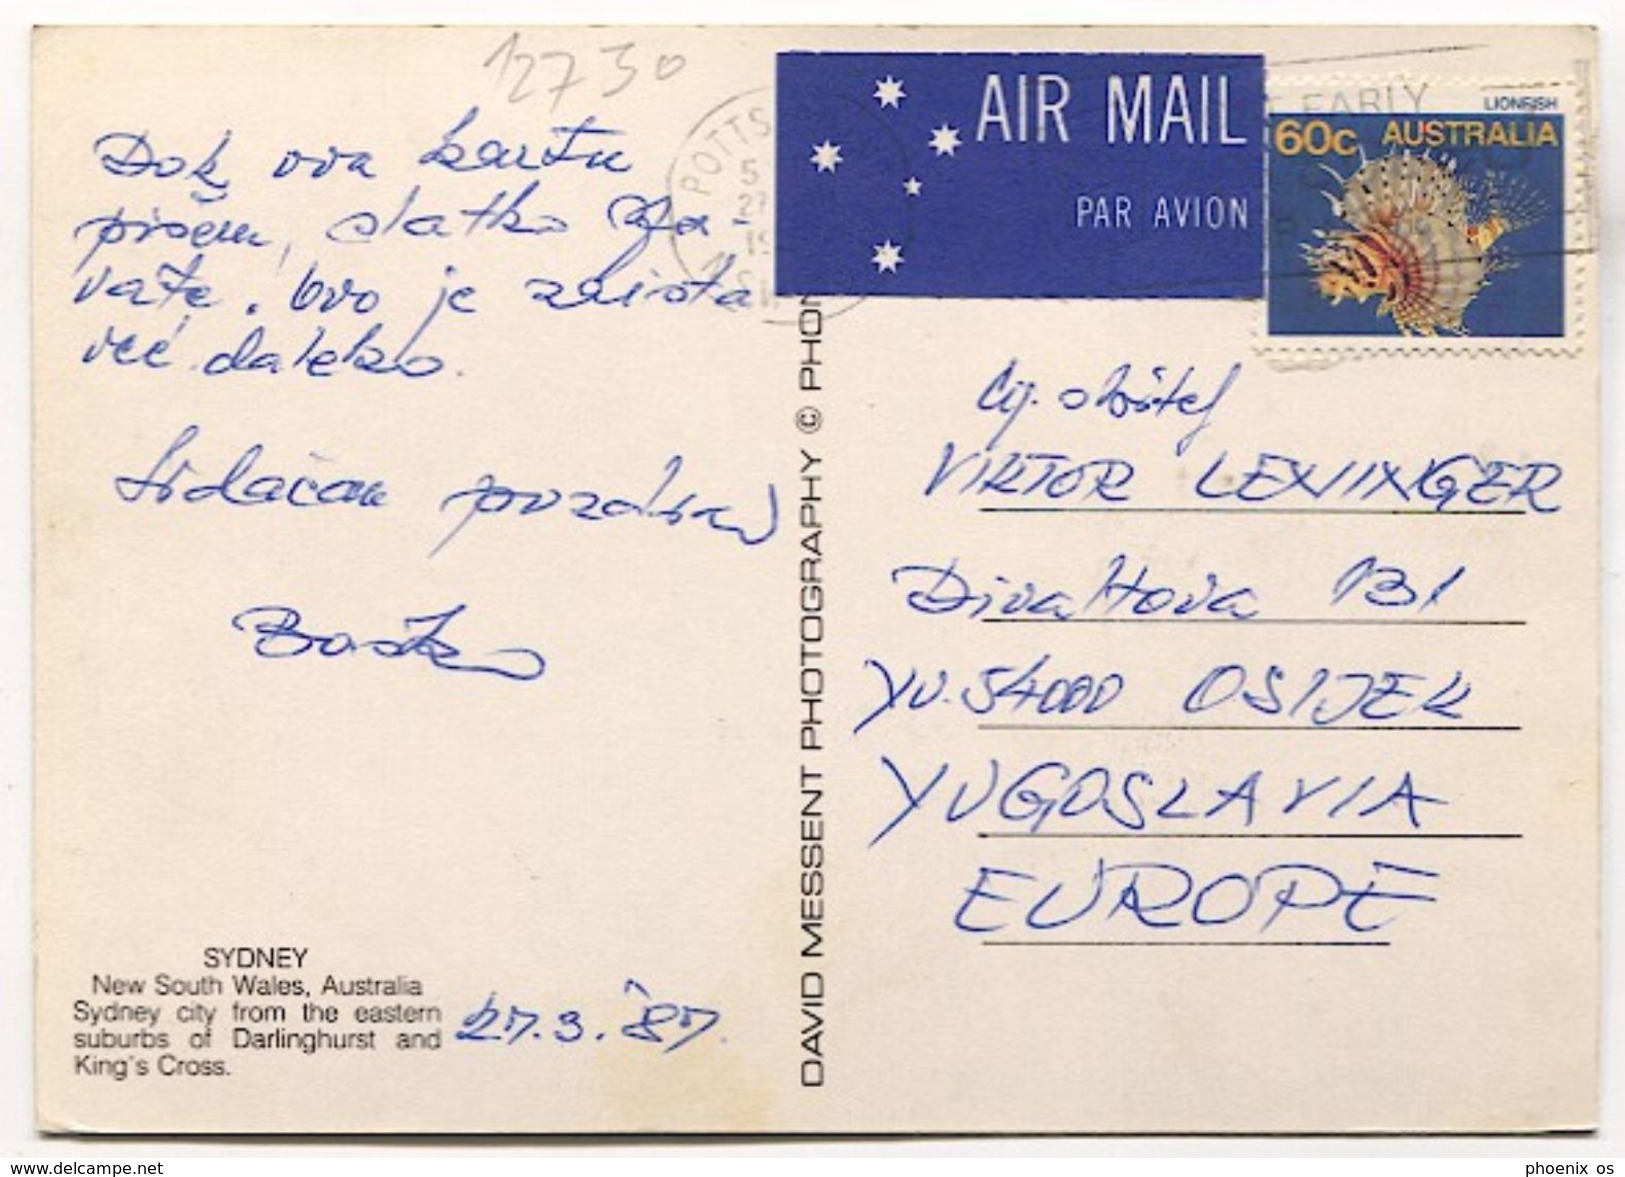 12730
Dok ovu kartu
pišem, slatko spa-
vate. Ovo je zaista
već daleko.
Srdačan pozdrav
Boško
SYDNEY
New South Wales, Australia
Sydney city from the eastern
suburbs of Darlinghurst and
King's Cross.
27.3.'87.
DAVID MESSENT PHOTOGRAPHY © PHO
POTTS
5
27
19
AIR MAIL
PAR AVION
EARLY
LIONFISH
60c AUSTRALIA
Cij. obitelj
VIKTOR LEXINGER
Divaltova 131
YU. 54000 OSIJEK
YUGOSLAVIA
EUROPE
www.delcampe.net
phoenix os